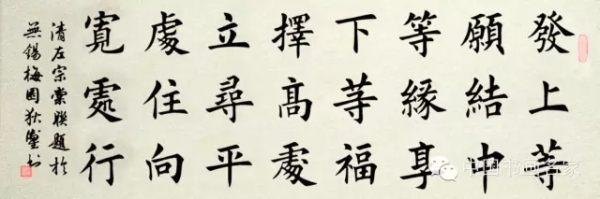 發上等
願結中
等緣享
下等福
擇髙處
立尋平
處住向
寬處行
清左宗棠联題於
無錫梅园狄书
中国书画名家